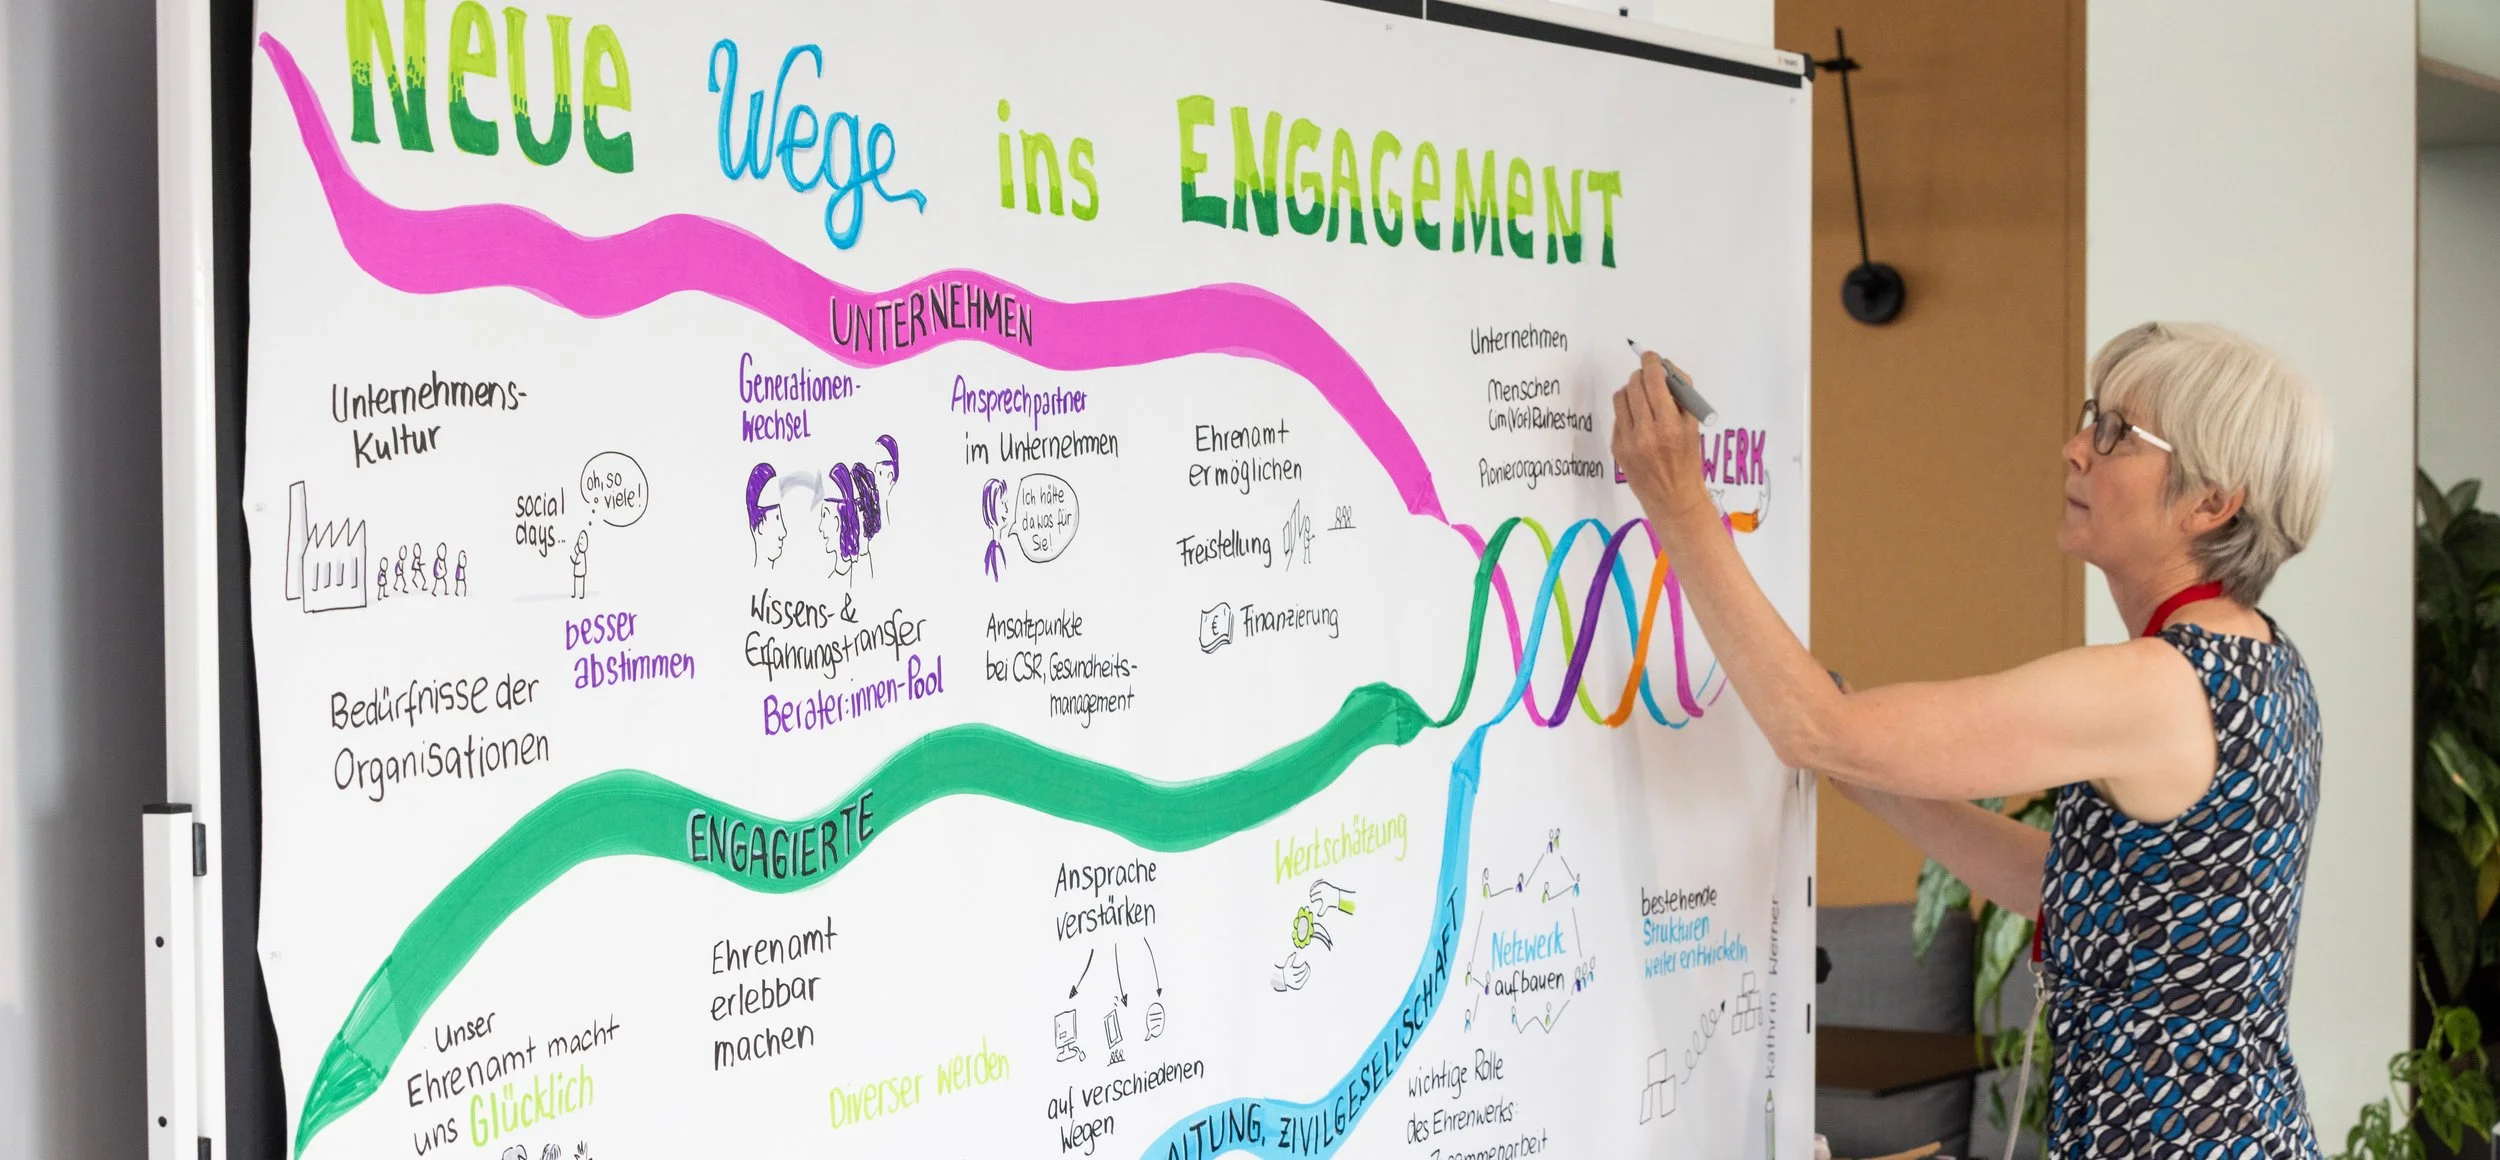 Neue Wege ins ENGAGEMENT
UNTERNEHMEN
Unternehmens-
Kultur
social
days...
oh, so
viele!
besser
abstimmen
Bedürfnisse der
Organisationen
Generationen-
wechsel
Wissens- &
Erfahrungstransfer
Berater:innen-Pool
Ansprechpartner
im Unternehmen
Ich hätte
da was für
Sie!
Ansatzpunkte
bei CSR, Gesundheits-
management
Ehrenamt
ermöglichen
Freistellung
€ Finanzierung
Unternehmen
Menschen
(im(Vor)Ruhestand
Pionierorganisationen
WERK
ENGAGIERTE
Unser
Ehrenamt macht
uns Glücklich
Ehrenamt
erlebbar
machen
Diverser werden
Ansprache
verstärken
auf verschiedenen
Wegen
Wertschätzung
ALTUNG, ZIVILGESELLSCHAFT
Netzwerk
aufbauen
wichtige Rolle
des Ehrenwerks:
bestehende
Strukturen
weiterentwickeln
Kathrin Werner